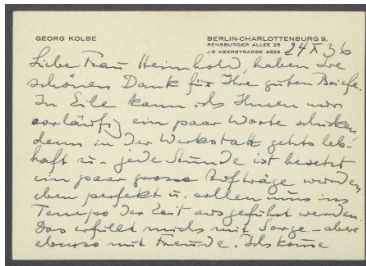 GEORG KOLBE
BERLIN-CHARLOTTENBURG 9.
SENSBURGER ALLEE 25
J9 HEERSTRASSE 4039
24 X 36
Liebe Frau Heimhold, haben Sie
schönen Dank für Ihre guten Briefe.
In Eile kann ich Ihnen nur
vorläufig ein paar Worte schicken
denn in der Werkstatt gehts leb-
haft zu - jede Stunde ist besetzt
ein paar grosse Aufträge wurden
eben perfekt u. sollen nun im
Tempo der Zeit ausgeführt werden.
Das erfüllt mich mit Sorge - aber
ebenso mit Freude. Ich